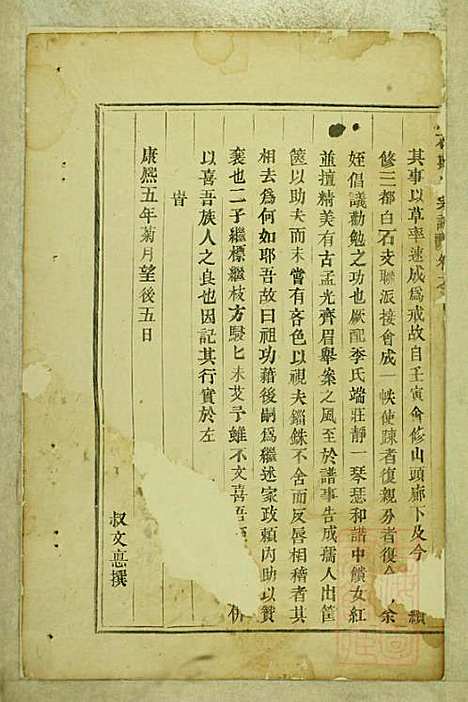 其事以草率速成為戒故自壬寅會修山頭廊下及今續
修三都白石支聯派接會成一帙使疎者復親分者復余
姪倡議勸勉之功也厥配李氏端莊靜一琴瑟和諧中饋女紅
並擅精美有古孟光齊眉舉案之風至於譜事告成孺人出筐
篋以助夫而未嘗有吝色以視夫錙銖不舍而反唇相稽者其
相去為何如耶吾故曰祖功藉後嗣為繼述家政賴內助以贊
襄也二子繼標繼枝方駸匕未艾予雖不文喜吾
以喜吾族人之良也因記其行實於左
旹
康熙五年菊月望後五日
叔文憙撰